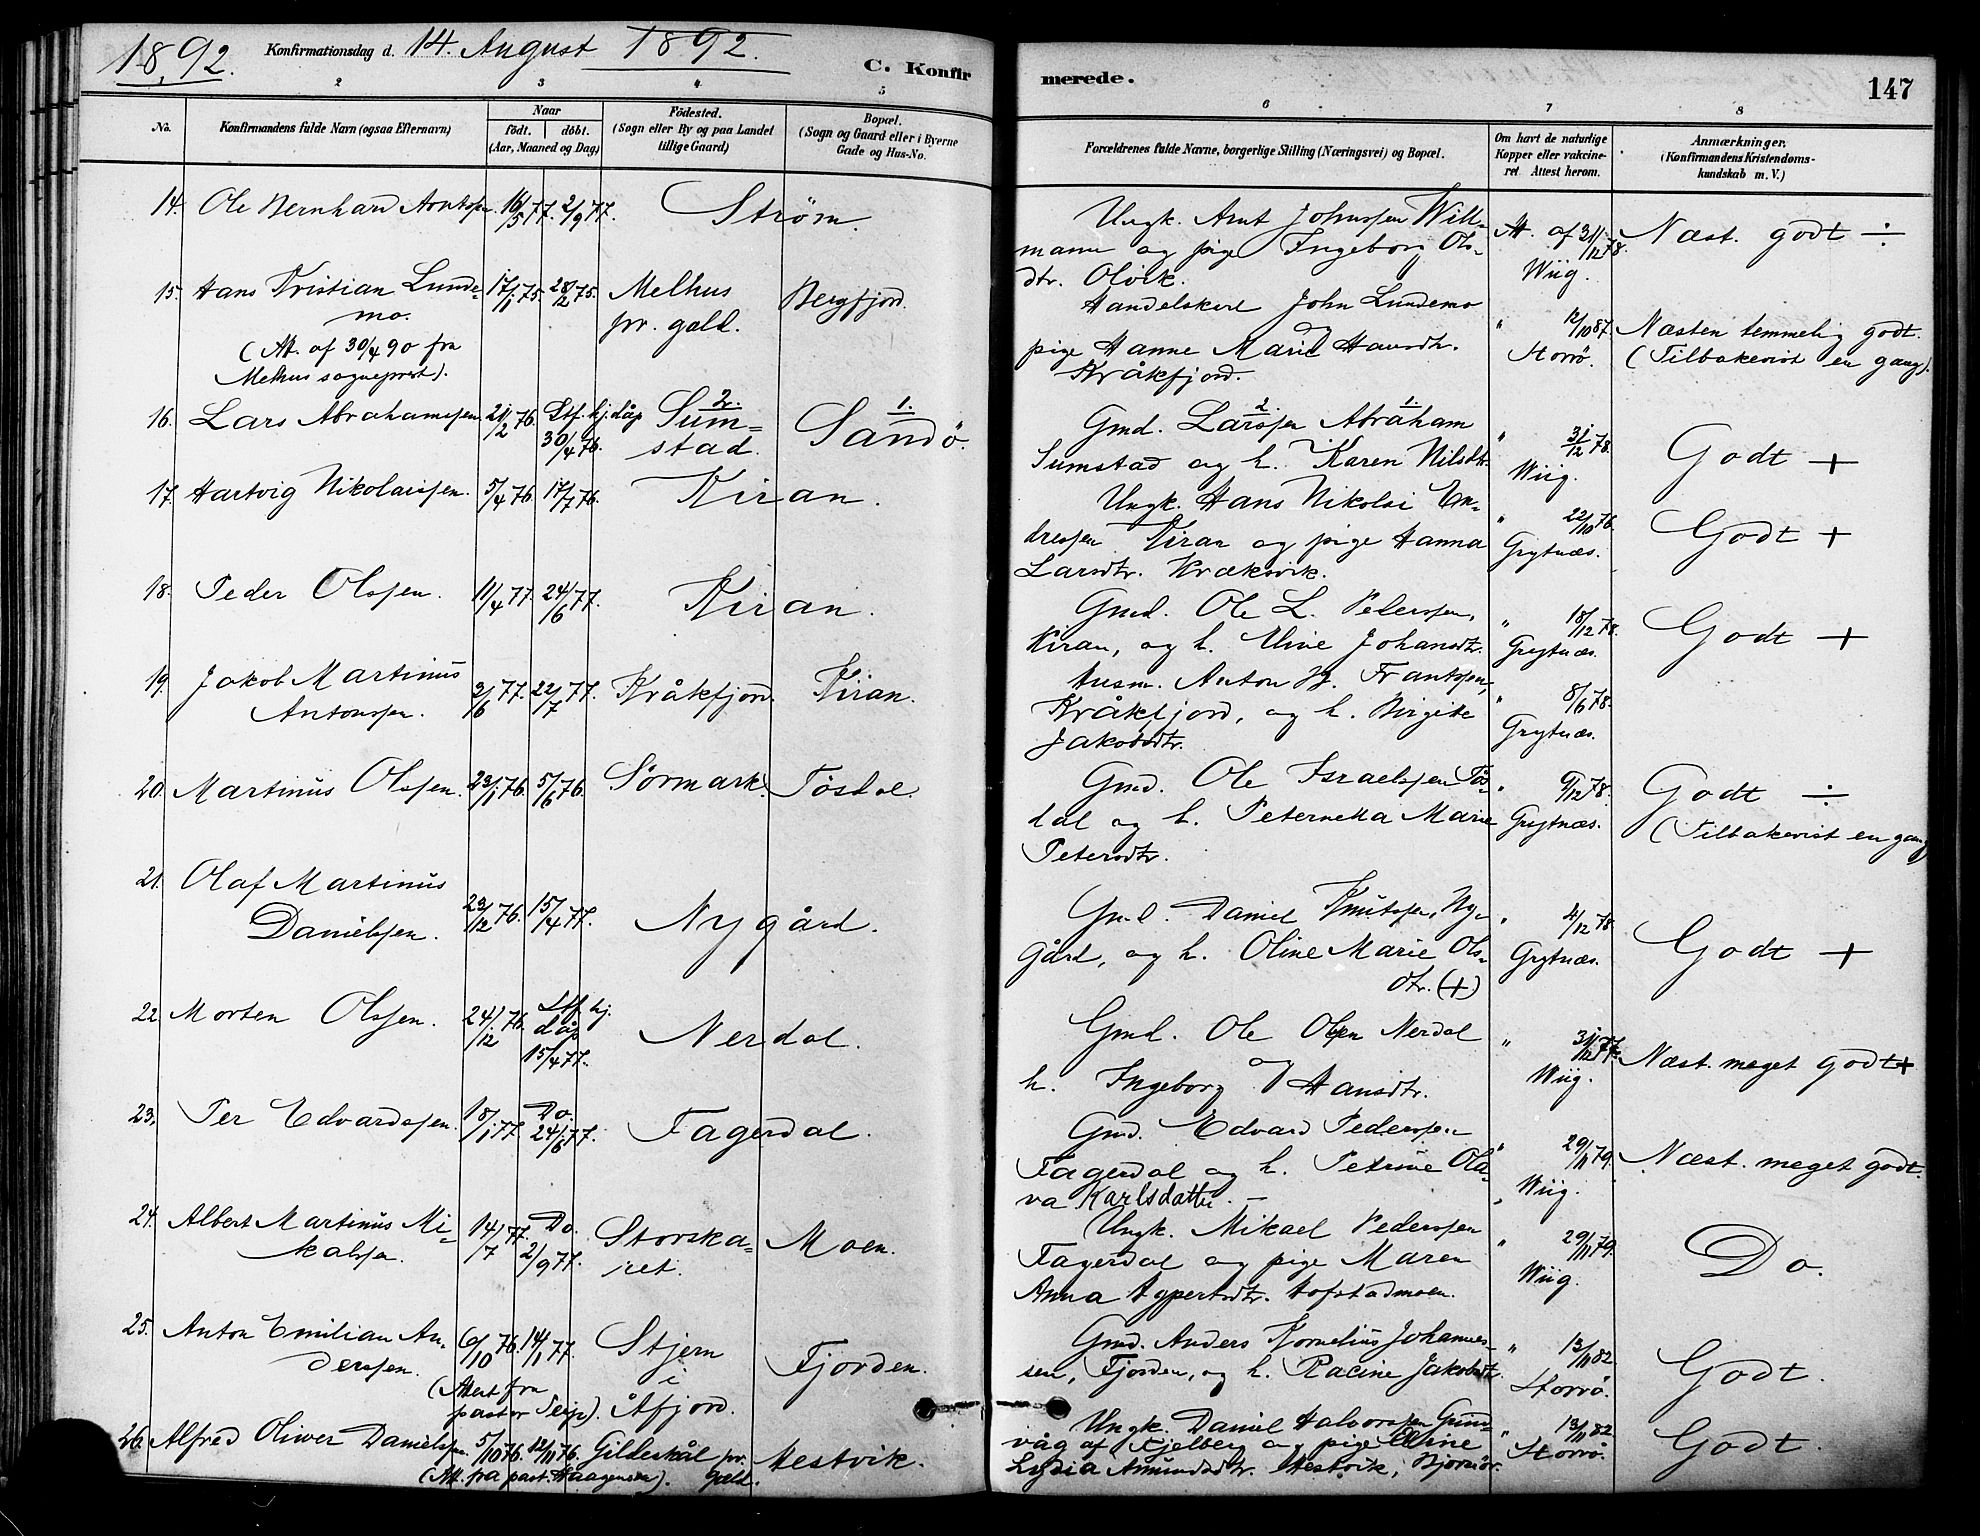 1892. Konfirmationsdag d. 14. August 1892.
C. Konfirmerede.
147
2 3 4 5 6 7 8
No.
Konfirmandens fulde Navn (ogsaa Efternavn)
Naar
födt. döbt.
(Aar, Maaned og Dag)
Födested.
(Sogn eller By og paa Landet
tillige Gaard)
Bopæl.
(Sogn og Gaard eller i Byerne
Gade og Hus-No.
Forældrenes fulde Navne, borgerlige Stilling (Næringsvei) og Bopæl.
Om havt de naturlige
Kopper eller vakcine-
ret. Attest herom.
Anmærkninger.
(Konfirmandens Kristendoms-
kundskab m. V.)
14. Ole Bernhard Arntsen. 16/5 77. 2/9 77. Strøm.
Ungk. Arnt Johnssen Will-
mann og pige Ingeborg Ols-
dtr. Olvik.
At. af 31/12 78.
Wiig.
Næst. godt ÷
15. Hans Kristian Lunde-
mo.
(At. af 30/4 90 fra
Melhus sogneprest).
17/1 75. 28/12 75. Melhus
pr. gæld.
Bergfjord.
Handelskarl John Lundemo
og
pige Hanne Marie Hansdtr.
Kråkfjord.
" 12/10 87.
Storrö.
Næsten temmelig godt.
(Tilbakevist en gang).
16. Lars Abrahamssen 21/2 76. Stf. hj.dåp
30/4 76.
2.
Sum-
stad.
1.
Sandö.
Gmd. Larssen Abraham
Sumstad og h. Karen Nilsdtr.
" 31/12 78.
Wiig.
Godt +
17. Hartvig Nikolaissen. 5/4 76. 17/7 76. Kiran.
Ungk. Hans Nikolai En-
dressen Kiran og pige Hanna
Larsdtr. Kræksvik.
" 22/10 76.
Grytnæs.
Godt +
18. Peder Olssen. 11/4 77. 24/6 77. Kiran.
Gmd. Ole L. Peterssen,
Kiran, og h. Eline Johansdtr.
" 18/12 78.
Grytnæs.
Godt +
19. Jakob Martinus
Antonssen.
3/6 77. 22/7 77. Kråkfjord. Kiran.
Husm. Anton B. Frantssen,
Kråkfjord, og h. Birgite
Jakobsdtr.
" 8/6 78.
Grytnæs.
20. Martinus Olssen. 23/1 76. 5/6 76. Sörmark. Tösdal.
Gmd. Ole Israelssen Tös-
dal og h. Peternella Marie
Petersdtr.
" 9/12 78.
Grytnæs.
Godt ÷
(Tilbakevist en gang)
21. Olaf Martinus
Danielssen.
23/12 76. 15/4 77. Nygård.
Gmd. Daniel Knutssen, Ny-
gård, og h. Oline Marie Ols-
dtr. (+)
" 4/12 78
Grytnæs.
Godt +
22. Morten Olssen. 24/12 76. Stf. hj.
dåp
15/4 77.
Nerdal.
Gmd. Ole Olsen Nerdal
og
h. Ingeborg Hansdtr.
" 31/12 77.
Wiig.
Næst. meget godt +
23. Per Edvardssen. 18/1 77. Do.
24/6 77.
Fagerdal.
Gmd. Edvard Pederssen
Fagerdal og h. Petrine Ola-
va Karlsdatter. –
" 29/11 79.
Wiig.
Næst. meget godt.
24. Albert Martinus Mi-
kalsen.
14/7 77. Do.
2/9 77.
Storska-
ret.
Moen.
Ungk. Mikael Pederssen
Fagerdal og pige Maren
Anna Agpertsdtr. Hofstadmoen.
" 29/11 79.
Wiig.
Do.
25. Anton Emilian An-
derssen.
(Attest fra
pastor Teip).
6/10 76. 14/1 77. Stjern
i
Åfjord.
Fjorden.
Gmd. Anders Kornelius Johannes-
sen, Fjorden, og h. Racine Jakobsdt.
" 13/11 82.
Storrö.
Godt.
26. Alfred Oliver Danielssen 5/10 76. 12/11 76. Gildeskål pr.
gæld.
(At. fra past. Haagensen).
Hestvik.
Ungk. Daniel Halvorssen Grind-
våg af Fjelberg og pige Eline
Lydia Amundsdtr. Hestvik, Bjørnör.
" 13/11 82.
Storrö.
Godt.